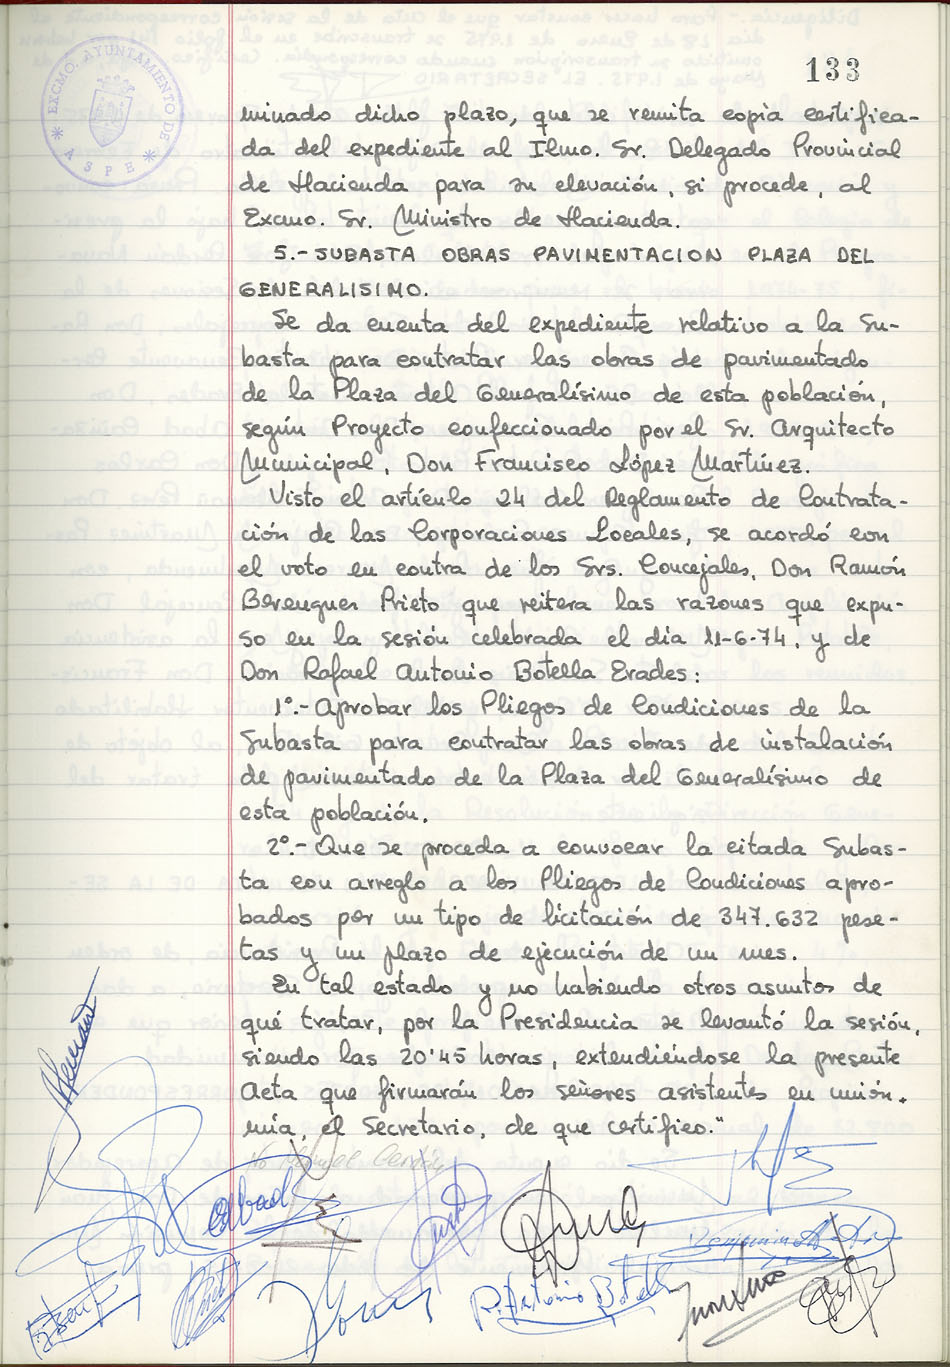 133
EXCMO. AYUNTAMIENTO DE
ASPE
minado dicho plazo, que se remita copia certifica-
da del expediente al Ilmo. Sr. Delegado Provincial
de Hacienda para su elevación, si procede, al
Excmo. Sr. Ministro de Hacienda.
5.- SUBASTA OBRAS PAVIMENTACION PLAZA DEL
GENERALISIMO.
Se da cuenta del expediente relativo a la Su-
basta para contratar las obras de pavimentado
de la Plaza del Generalísimo de esta población,
según Proyecto confeccionado por el Sr. Arquitecto
Municipal, Don Francisco López Martínez.
Visto el artículo 24 del Reglamento de Contrata-
ción de las Corporaciones Locales, se acordó con
el voto en contra de los Srs. Concejales, Don Ramón
Berenguer Prieto que reitera las razones que expu-
so en la sesión celebrada el día 11-6-74, y de
Don Rafael Antonio Botella Erades:
1º.- Aprobar los Pliegos de Condiciones de la
Subasta para contratar las obras de instalación
de pavimentado de la Plaza del Generalísimo de
esta población.
2º.- Que se proceda a convocar la citada Subas-
ta con arreglo a los Pliegos de Condiciones apro-
bados por un tipo de licitación de 347.632 pese-
tas y un plazo de ejecución de un mes.
En tal estado y no habiendo otros asuntos de
qué tratar, por la Presidencia se levantó la sesión,
siendo las 20'45 horas, extendiéndose la presente
Acta que firmarán los señores asistentes en unión.
mía, el Secretario, de que certifico."
R. Antonio Botella